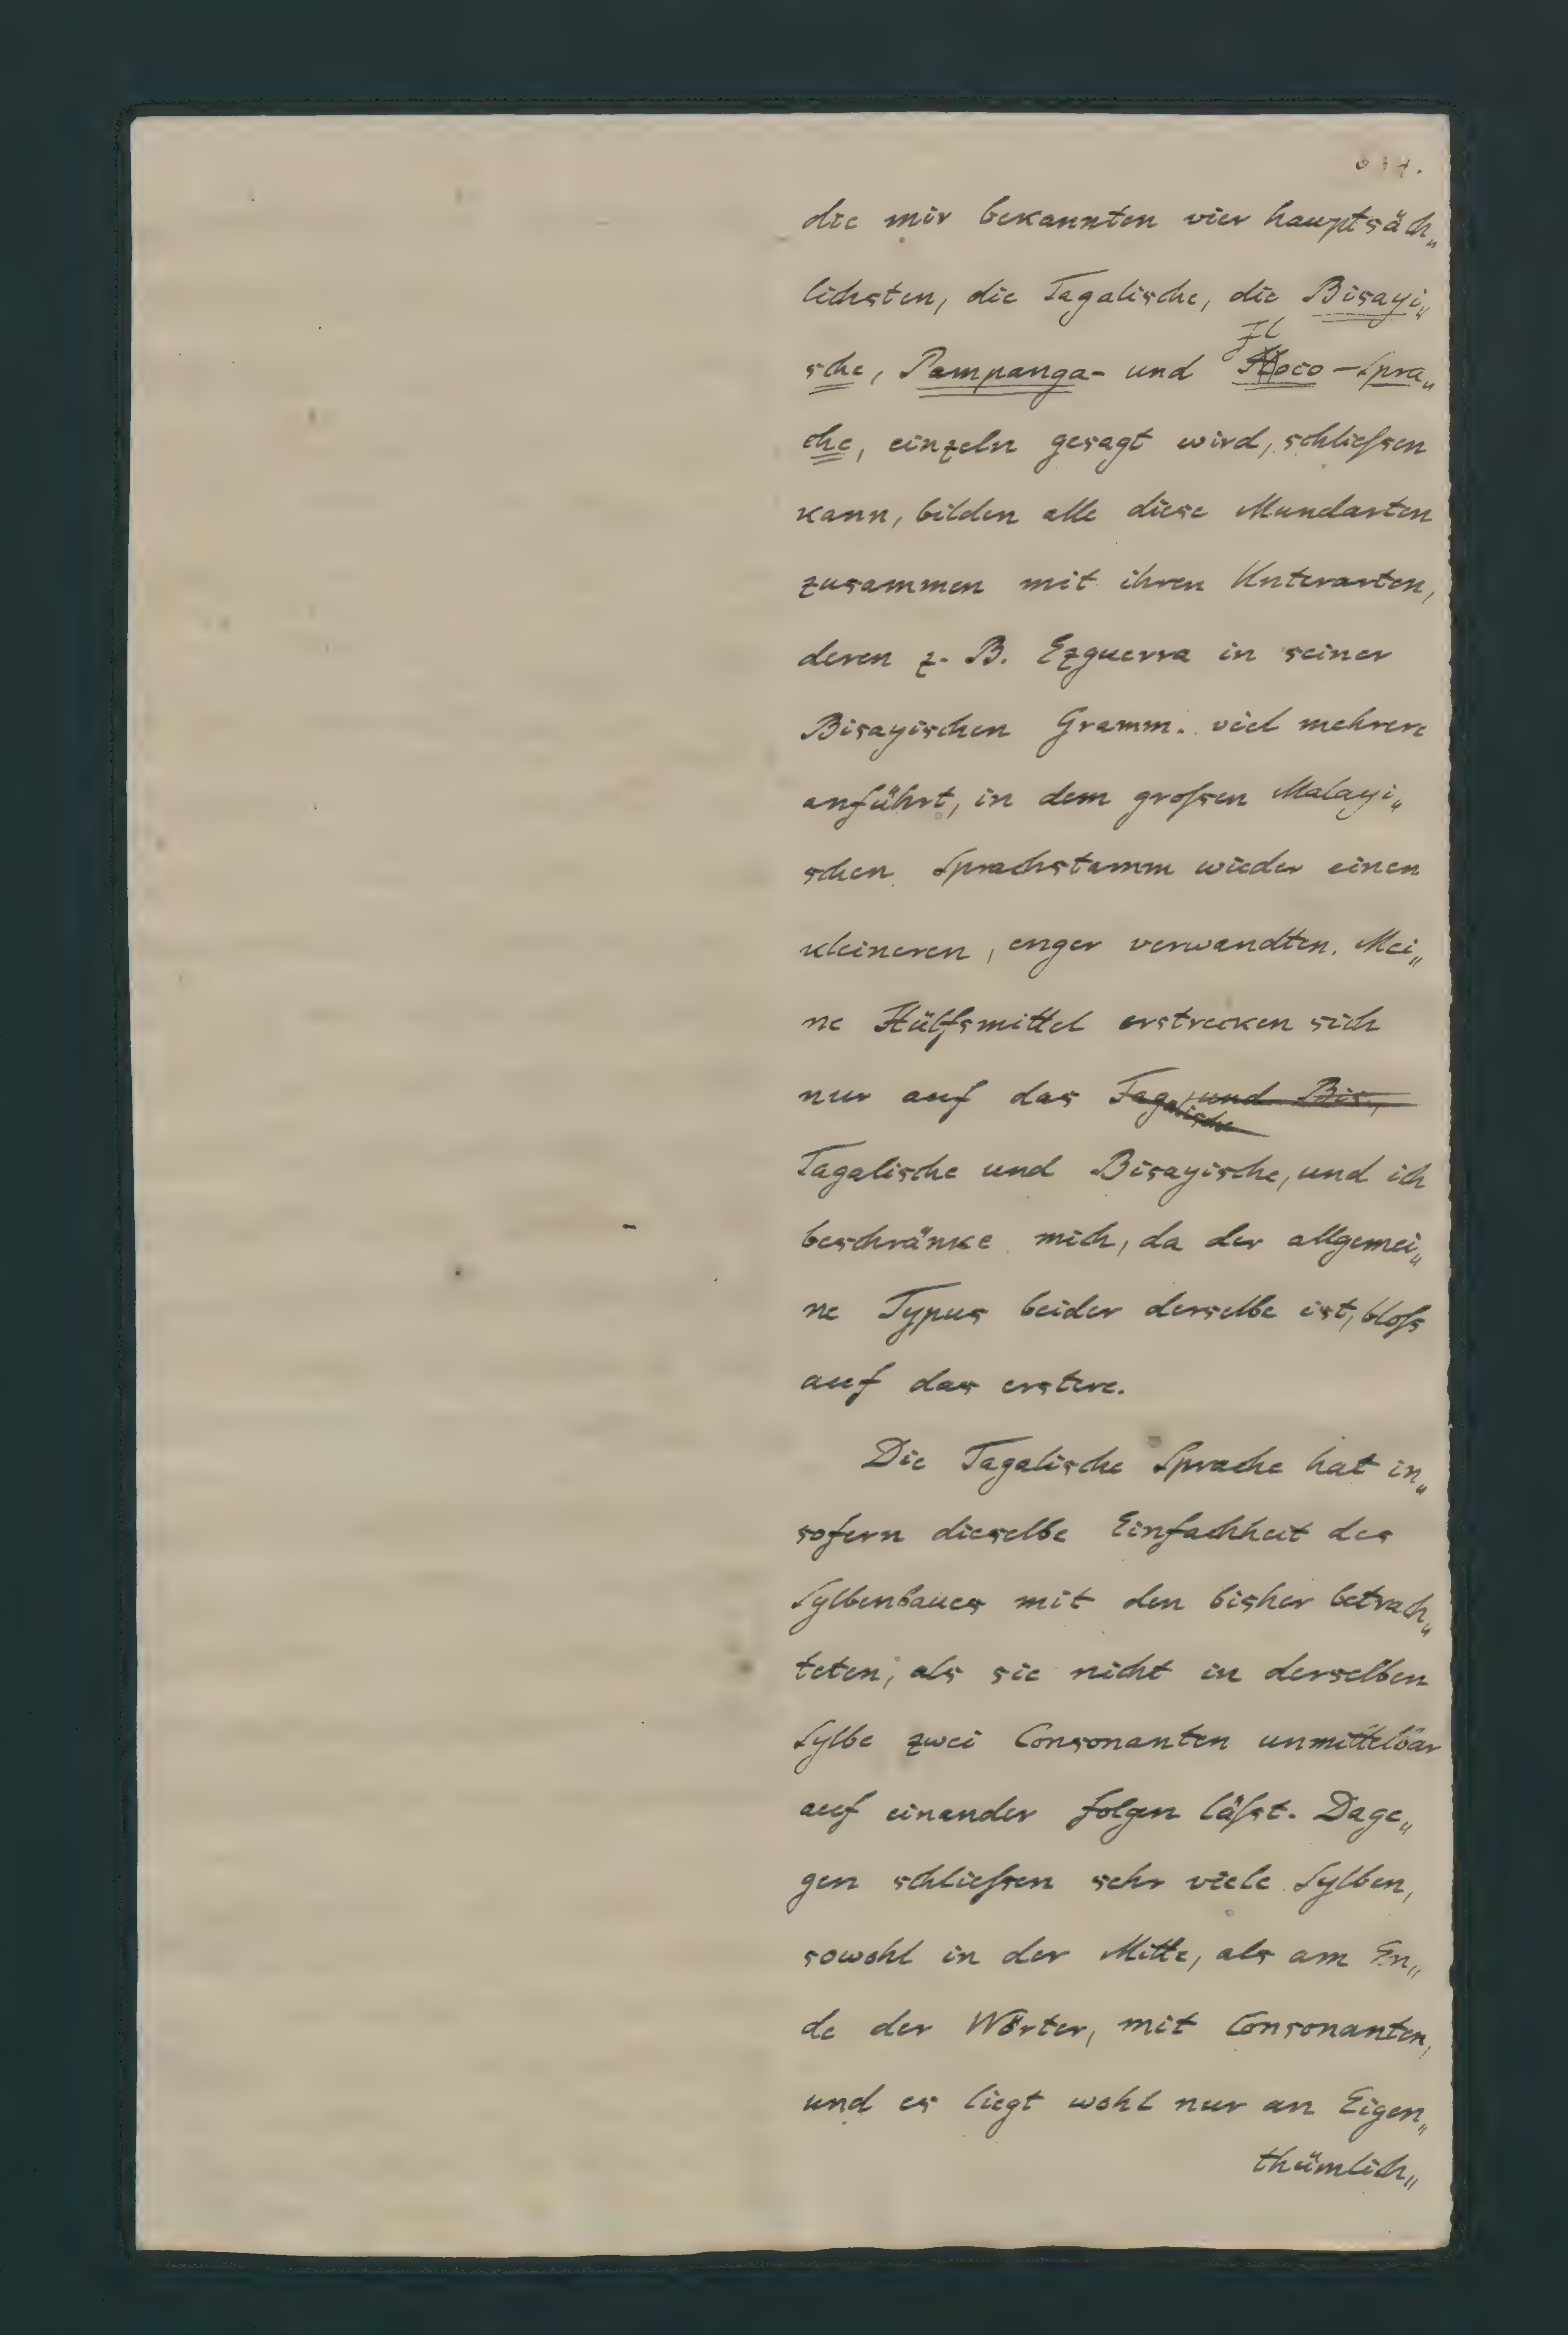 die mir bekannten vier hauptsäch„
lichsten, die Tagalische, die Bisayi„
Il
sche, Pampanga- und oco-Spra„
che, einzeln gesagt wird, schliefsen
kann, bilden alle diese Mundarten
zusammen mit ihren Unterarten,
deren z. B. Ezguerra in seiner
Bisayischen Gramm. viel mehrere
anführt, in dem grofsen Malayi„
schen Sprachstamm wieder einen
kleineren, enger verwandten. Mei„
ne Hülfsmittel erstrecken sich
nur auf das Tagalische und Bis.
Tagalische und Bisayische, und ich
beschränke mich, da der allgemei„
ne Typus beider derselbe ist, blofs
auf das erstere.
Die Tagalische Sprache hat in„
sofern dieselbe Einfachheit des
Sylbenbaues mit den bisher betrach„
teten, als sie nicht in derselben
Sylbe zwei Consonanten unmittelbar
auf einander folgen läfst. Dage„
gen schliefsen sehr viele Sylben,
sowohl in der Mitte, als am En„
de der Wörter, mit Consonanten,
und es liegt wohl nur an Eigen„
thümlich„